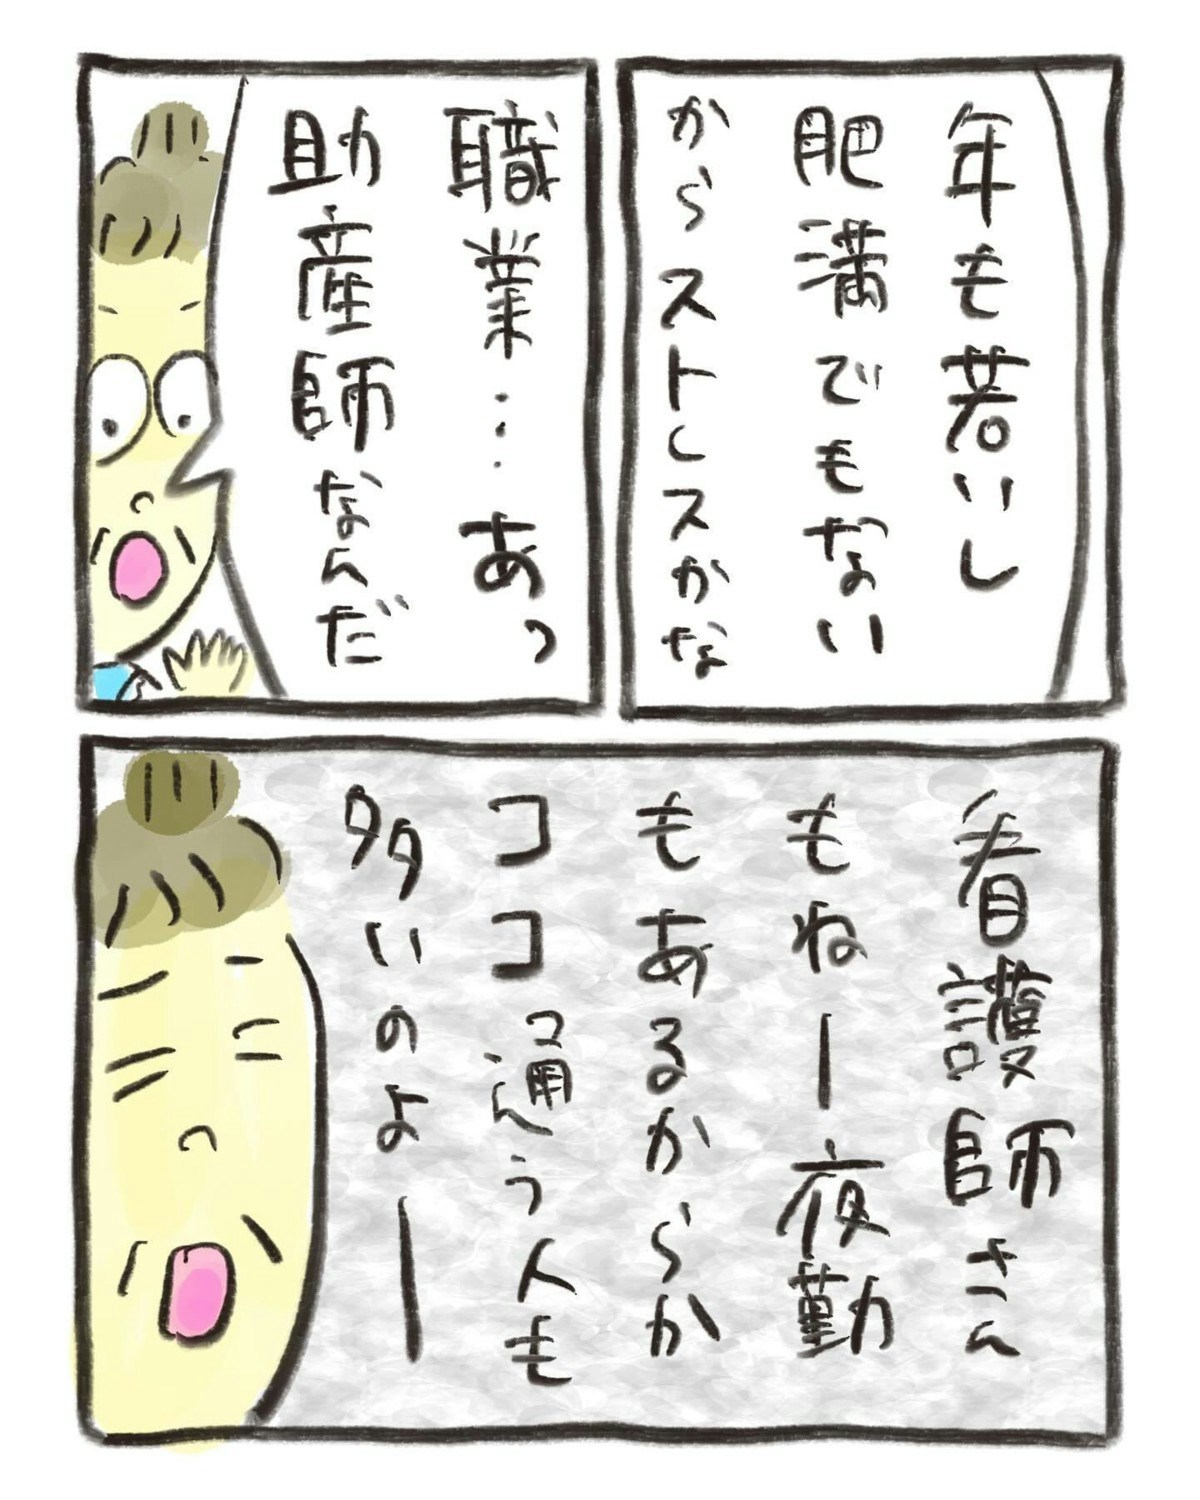 年も若いし
肥満でもない
からストレスかな
職業…あっ
助産師なんだ
看護師さん
もねー夜勤
もあるからか
ココ通う人も
多いのよー